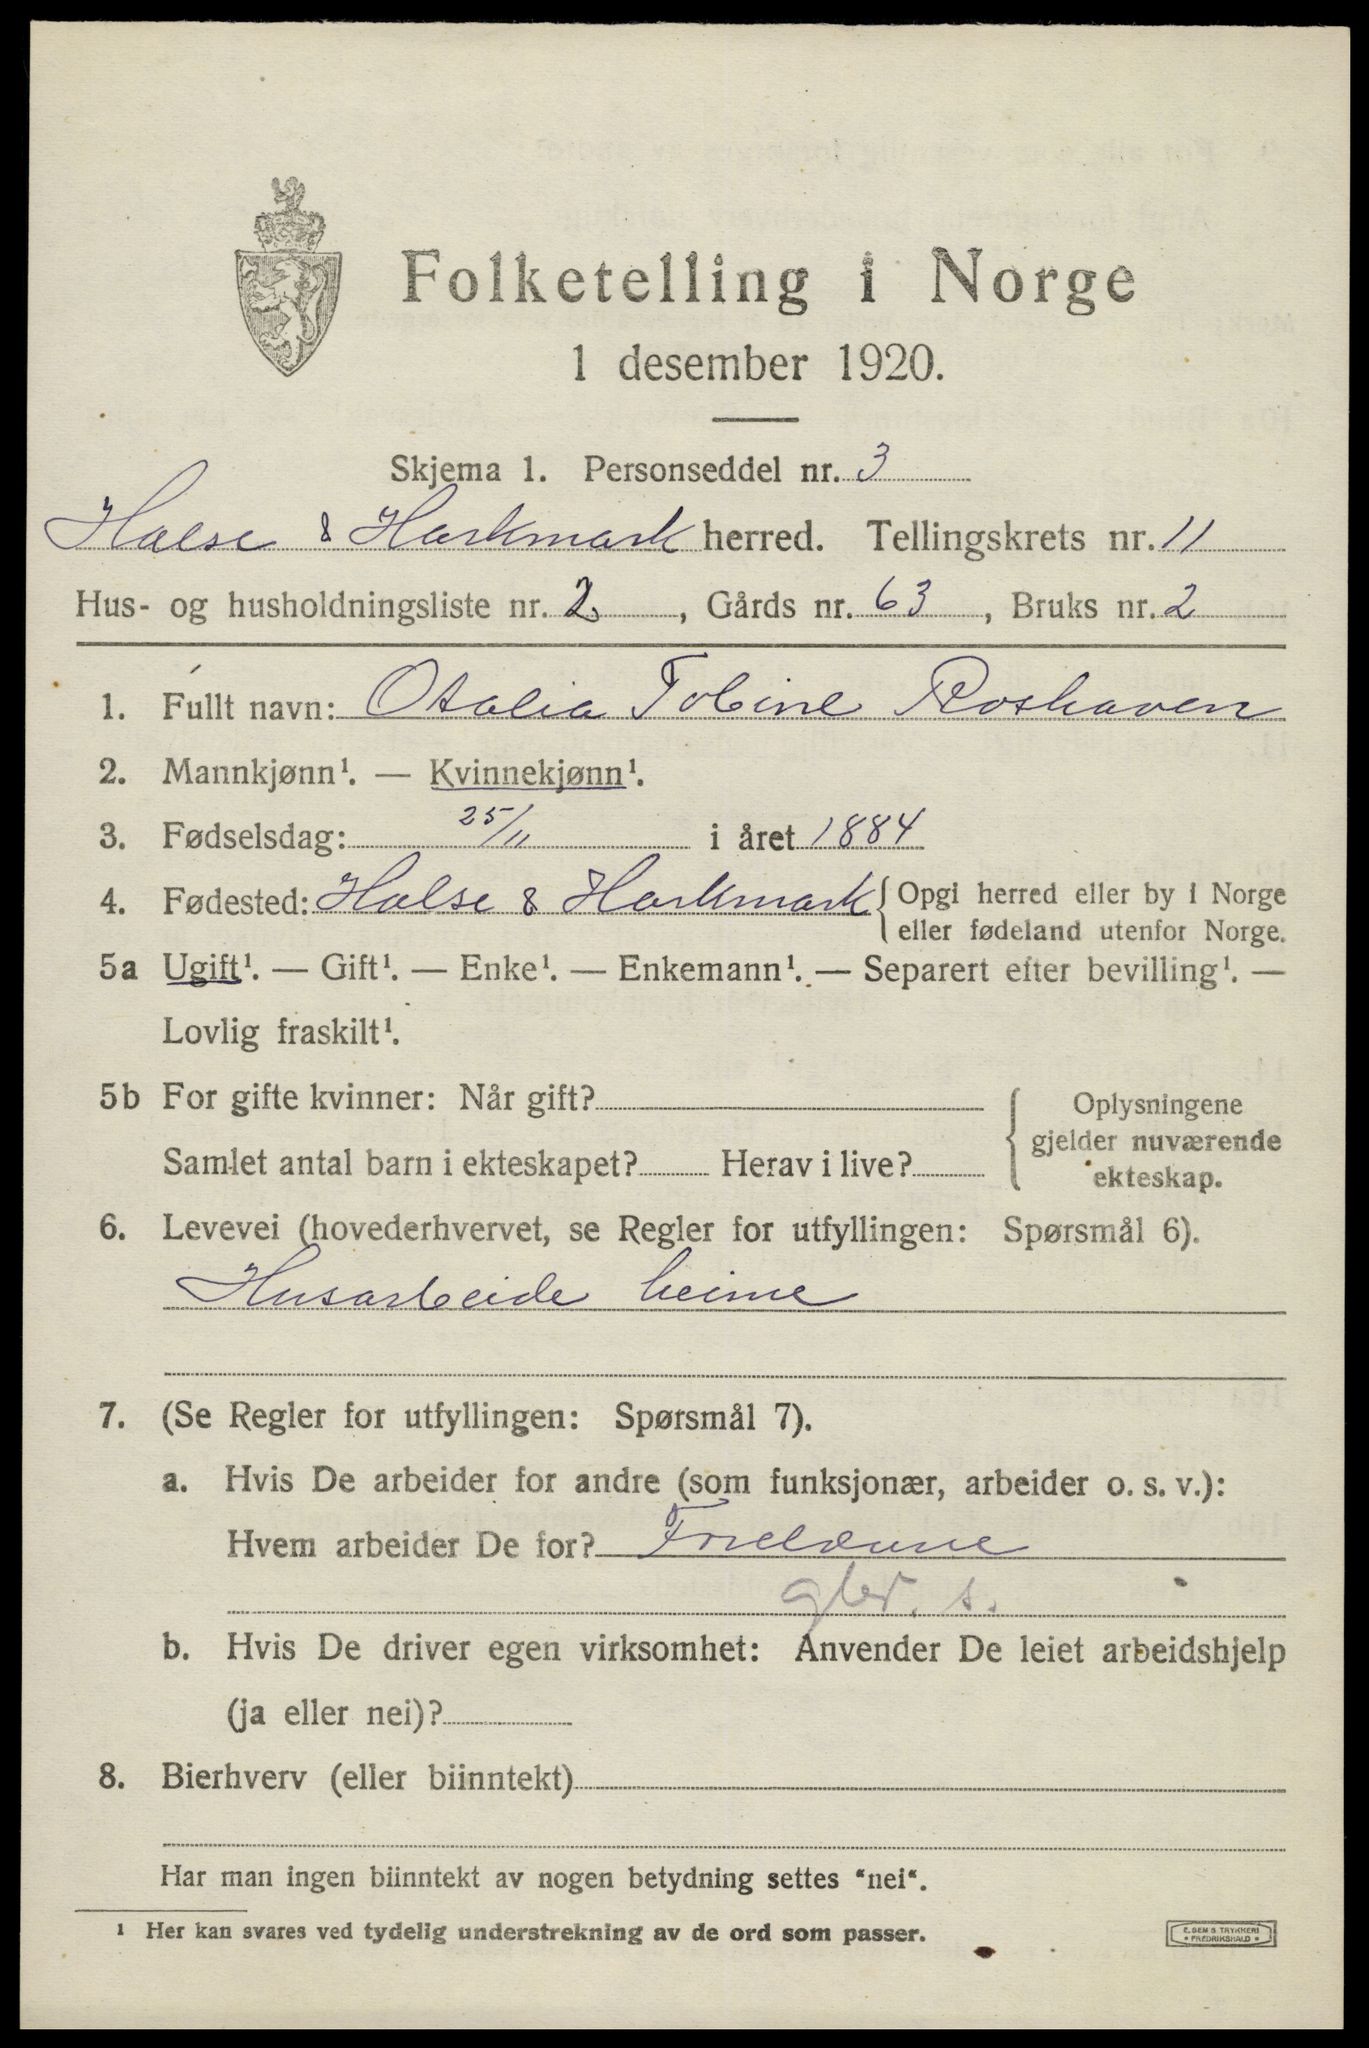 Folketelling i Norge
1 desember 1920.
Skjema 1. Personseddel nr. 3
Halse & Harkmark herred. Tellingskrets nr. 11
Hus- og husholdningsliste nr. 2, Gårds nr. 63, Bruks nr. 2
1. Fullt navn: Otalia Tobine Roshaven
2. Mannkjønn¹. — Kvinnekjønn¹.
3. Fødselsdag: 25/11 i året 1884
4. Fødested: Halse & Harkmark { Opgi herred eller by i Norge
eller fødeland utenfor Norge.
5a Ugift¹. — Gift¹. — Enke¹. — Enkemann¹. — Separert efter bevilling¹. —
Lovlig fraskilt¹.
5b For gifte kvinner: Når gift?
Samlet antal barn i ekteskapet? Herav i live?
Oplysningene
gjelder nuværende
ekteskap.
6. Levevei (hovederhvervet, se Regler for utfyllingen: Spørsmål 6).
Husarbeide heime
7. (Se Regler for utfyllingen: Spørsmål 7).
a. Hvis De arbeider for andre (som funksjonær, arbeider o. s. v.):
Hvem arbeider De for? Foreldrene
s.
b. Hvis De driver egen virksomhet: Anvender De leiet arbeidshjelp
(ja eller nei)?
8. Bierhverv (eller biinntekt)
Har man ingen biinntekt av nogen betydning settes "nei".
¹ Her kan svares ved tydelig understrekning av de ord som passer.
E. SEM'S TRYKKERI
* FREDRIKSHALD *